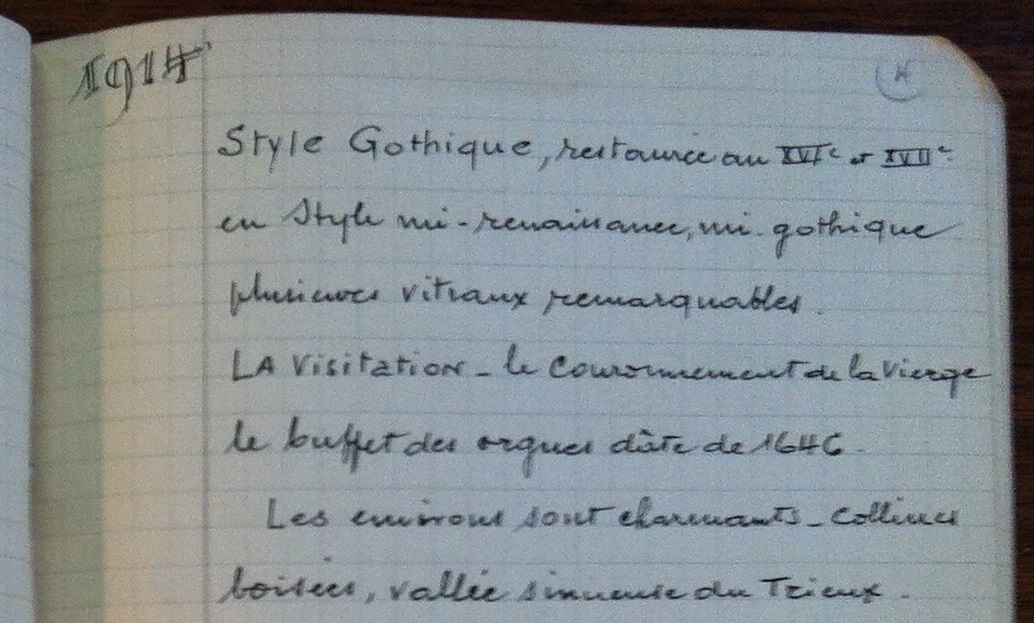 1914
Style Gothique, restaurée au XVIe et XVIIe
en Style mi-renaissance, mi-gothique
plusieurs vitraux remarquables.
LA Visitation - le Couronnement de la Vierge
le buffet des orgues dâte de 1646.
Les environs sont charmants - collines
boisées, vallée sinueuse du Trieux.